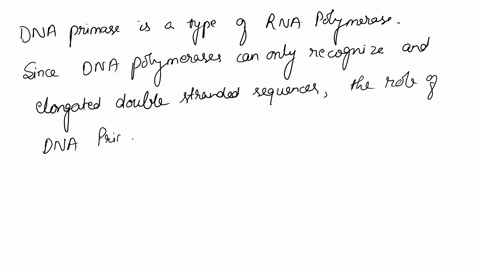 DNA primase is a type of RNA Polymerase.
Since DNA polymerases can only recognize and
elongated double stranded sequences, the role of
DNA Pric.